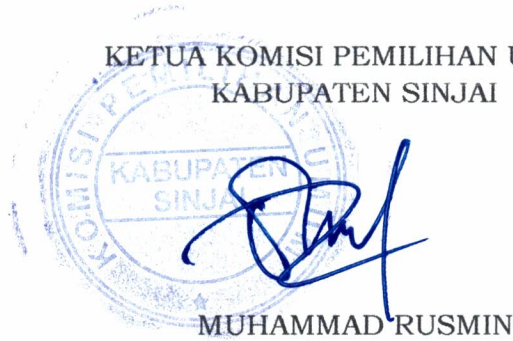 KETUA KOMISI PEMILIHAN U
KABUPATEN SINJAI
KOMISI PEMILIHAN UMUM
KABUPATEN
SINJAI
MUHAMMAD RUSMIN